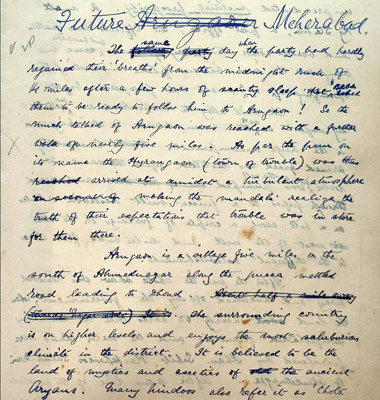 Future Arngaon Meherabad.
The following same party day when the party had hardly
regained their 'breaths' from the midnight rush of
14 miles after a few hours of scanty sleep that Baba asked
them to be ready to follow him to Arngaon! So the
much talked of Arngaon was reached with a further
walk of nearly five miles. As per the pun on
its name the Hyrangaon (town of trouble) was thus
reached arrived at amidst a turbulent atmosphere
on account of making the mandali realize the
truth of their expectations that trouble was in store
for them there.
Arngaon is a village five miles on the
south of Ahmednagar along the pucca metled
road leading to Dhond. About half a mile away
she surrounding country
is on higher levels and enjoys the most salubrious
climate in the district. It is believed to be the
land of mystics and ascetics of the ancient
Aryans. Many hindoos also refer it as 'Chota